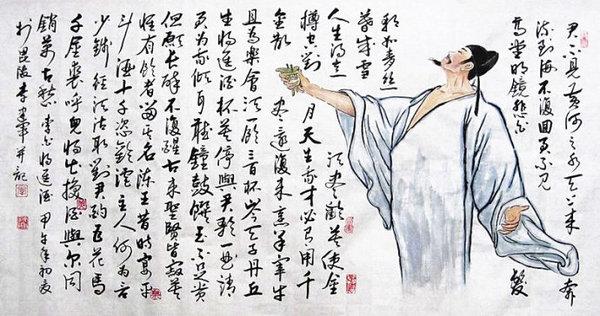 君不見黄河之水天上来 奔
流到海不復回君不見
高堂明鏡悲白 髮
朝如青丝
暮成雪
人生得意 須尽歡莫使金
樽空對 月天生我才必有用千
金散 尽還復来烹羊宰牛
且為樂會須一飲三百杯岑夫子丹丘
生將進酒杯莫停與君歌一曲請
君為我倾耳聽鐘鼓饌玉不足贵
但願長醉不復醒古来聖賢皆寂寞
惟有飲者留其名陳王昔時宴平
斗酒十千恣歡謔主人何為言
少錢径須沽取對君酌五花馬
千金裘呼兒將出換酒與尔同
銷萬古愁 李白將進酒 甲午年初夏
於毘陵 李 軍并記